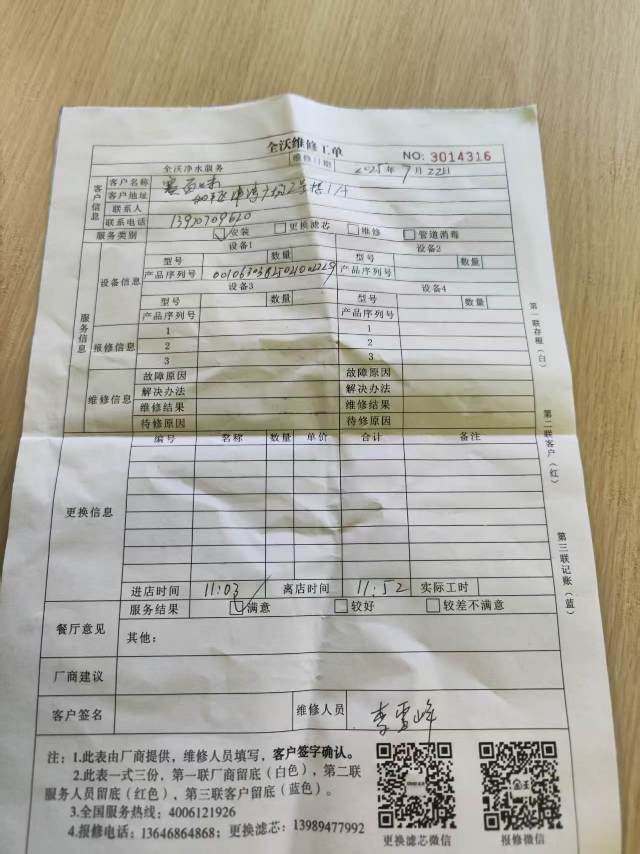 全沃维修工单
NO: 3014316
全沃净水服务 维修日期 2025年7月22日
客户信息
客户名称
客户地址
联系人
联系电话 13920709620
服务类别 安装 更换滤芯 维修 管道消毒
服务信息
设备信息
设备1 设备2
型号 数量 型号 数量
产品序列号 产品序列号
设备3 设备4
型号 数量 型号 数量
产品序列号 产品序列号
报修信息
1 1
2 2
3 3
维修信息
故障原因 故障原因
解决办法 解决办法
维修结果 维修结果
待修原因 待修原因
更换信息
编号 名称 数量 单价 合计 备注
进店时间 11:03 离店时间 11:52 实际工时
餐厅意见
服务结果 满意 较好 较差不满意
其他:
厂商建议
客户签名 维修人员 李雪峰
注:1.此表由厂商提供,维修人员填写,客户签字确认。
2.此表一式三份,第一联厂商留底(白色),第二联
服务人员留底(红色),第三联客户留底(蓝色)。
3.全国服务热线:4006121926
4.报修电话:13646864868;更换滤芯:13989477992
更换滤芯微信 报修微信
第一联存根(白)
第二联客户(红)
第三联记账(蓝)